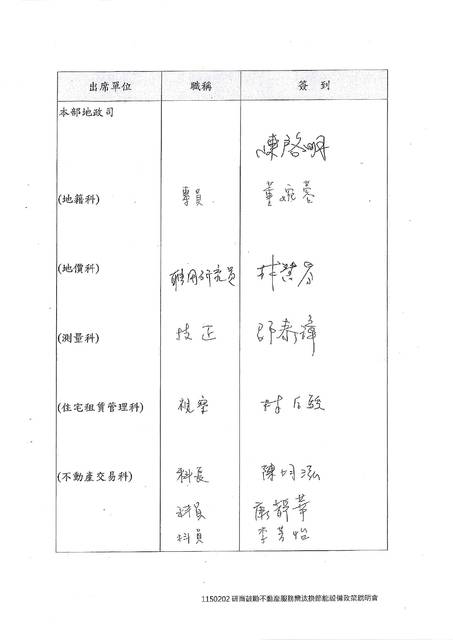 出席單位 職稱 簽到
本部地政司
陳啓明
(地籍科) 專員 董婉蓉
(地價科) 聘用研究員 林慧
(測量科) 技正 邱泰
(住宅租賃管理科) 視察 林
(不動產交易科) 科長 陳均泓
科員 靜華
科員 李芳怡
1150202 研商鼓勵不動產服務業汰換節能設備政策說明會